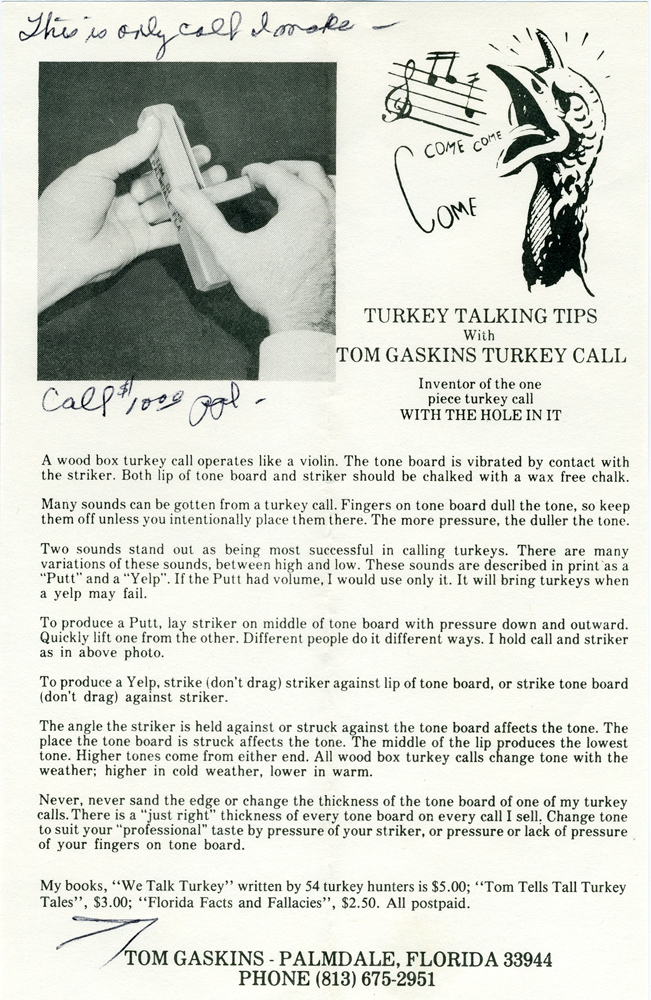 This is only call I make —
COME COME
COME
TURKEY TALKING TIPS
With
TOM GASKINS TURKEY CALL
Call $10.00 ppd. -
Inventor of the one
piece turkey call
WITH THE HOLE IN IT
A wood box turkey call operates like a violin. The tone board is vibrated by contact with
the striker. Both lip of tone board and striker should be chalked with a wax free chalk.
Many sounds can be gotten from a turkey call. Fingers on tone board dull the tone, so keep
them off unless you intentionally place them there. The more pressure, the duller the tone.
Two sounds stand out as being most successful in calling turkeys. There are many
variations of these sounds, between high and low. These sounds are described in print as a
"Putt" and a "Yelp". If the Putt had volume, I would use only it. It will bring turkeys when
a yelp may fail.
To produce a Putt, lay striker on middle of tone board with pressure down and outward.
Quickly lift one from the other. Different people do it different ways. I hold call and striker
as in above photo.
To produce a Yelp, strike (don't drag) striker against lip of tone board, or strike tone board
(don't drag) against striker.
The angle the striker is held against or struck against the tone board affects the tone. The
place the tone board is struck affects the tone. The middle of the lip produces the lowest
tone. Higher tones come from either end. All wood box turkey calls change tone with the
weather; higher in cold weather, lower in warm.
Never, never sand the edge or change the thickness of the tone board of one of my turkey
calls. There is a "just right" thickness of every tone board on every call I sell. Change tone
to suit your "professional" taste by pressure of your striker, or pressure or lack of pressure
of your fingers on tone board.
My books, "We Talk Turkey" written by 54 turkey hunters is $5.00; "Tom Tells Tall Turkey
Tales", $3.00; "Florida Facts and Fallacies", $2.50. All postpaid.
TOM GASKINS - PALMDALE, FLORIDA 33944
PHONE (813) 675-2951